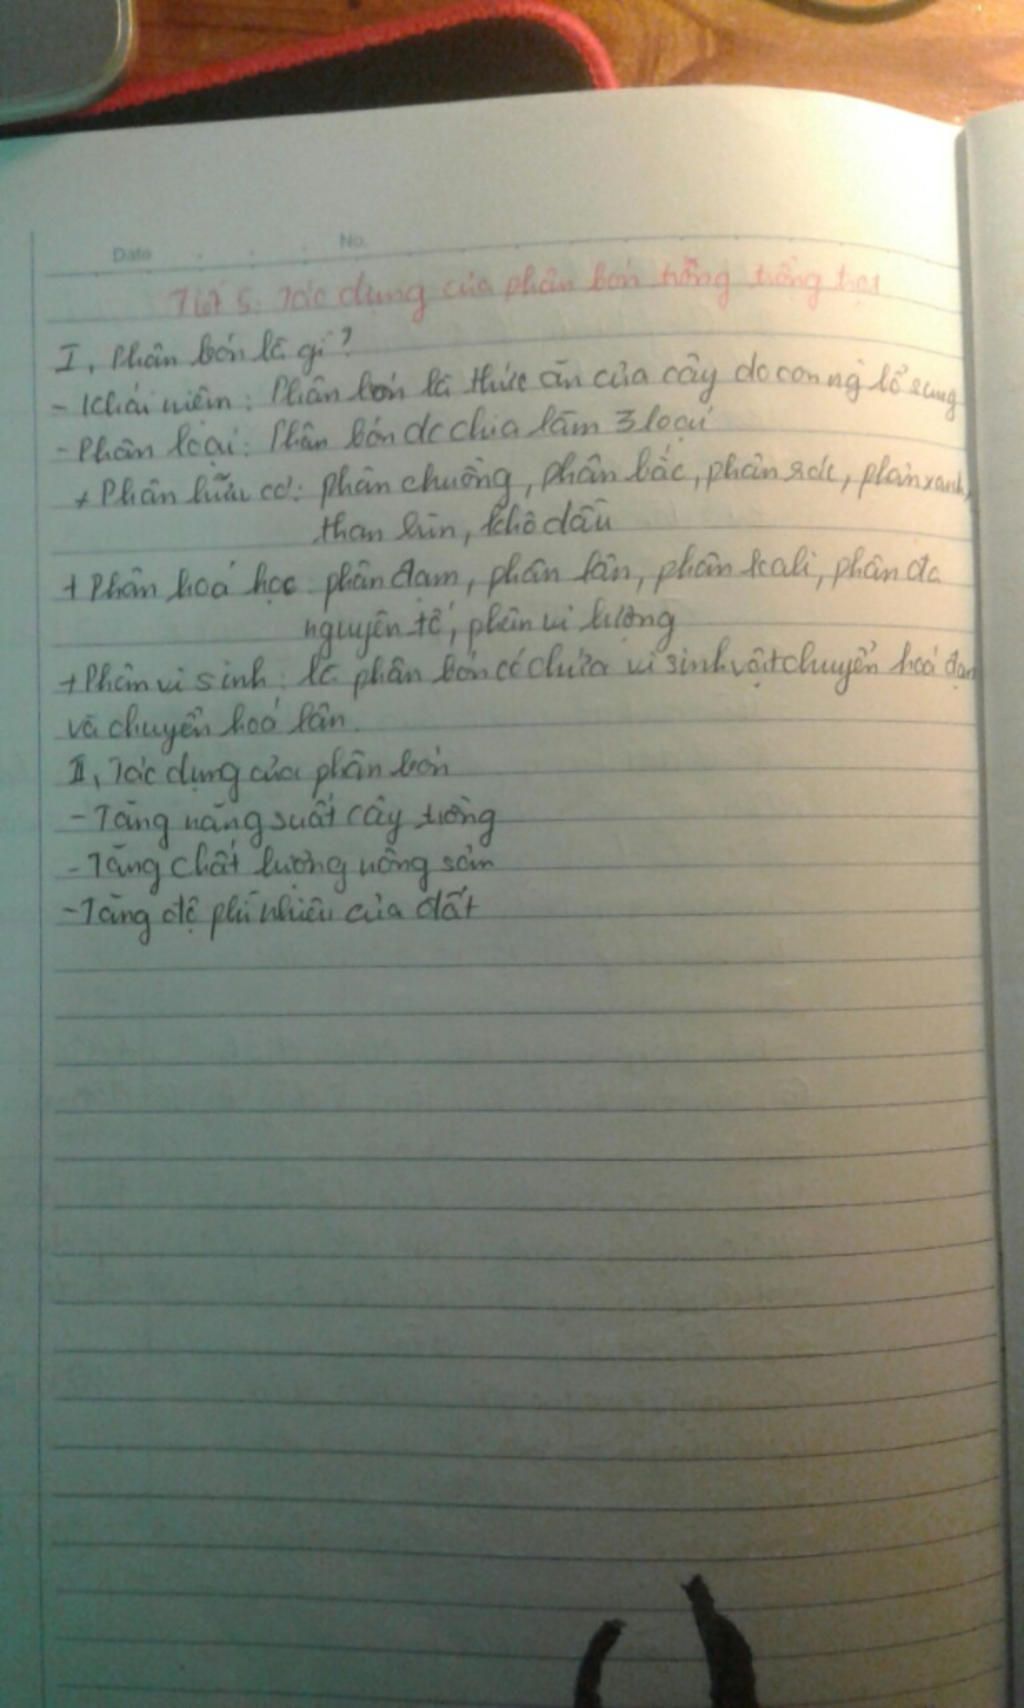 Date No.
Tiết 5: Tác dụng của phân bón trồng trồng trọt
I, Phân bón là gì?
- Khái niệm: Phân bón là thức ăn của cây do con ng bổ sung
- Phân loại: Phân bón dc chia làm 3 loại
+ Phân hữu cơ: phân chuồng, phân bắc, phân rác, phân xanh,
than bùn, khô dầu
+ Phân hoá học phân đạm, phân lân, phân kali, phân đa
nguyên tố, phân vi lượng
+ Phân vi sinh: là phân bón có chứa vi sinh vật chuyển hoá đạm
và chuyển hoá lân.
II, Tác dụng của phân bón
- Tăng năng suất cây trồng
- Tăng chất lượng nông sản
- Tăng độ phì nhiêu của đất